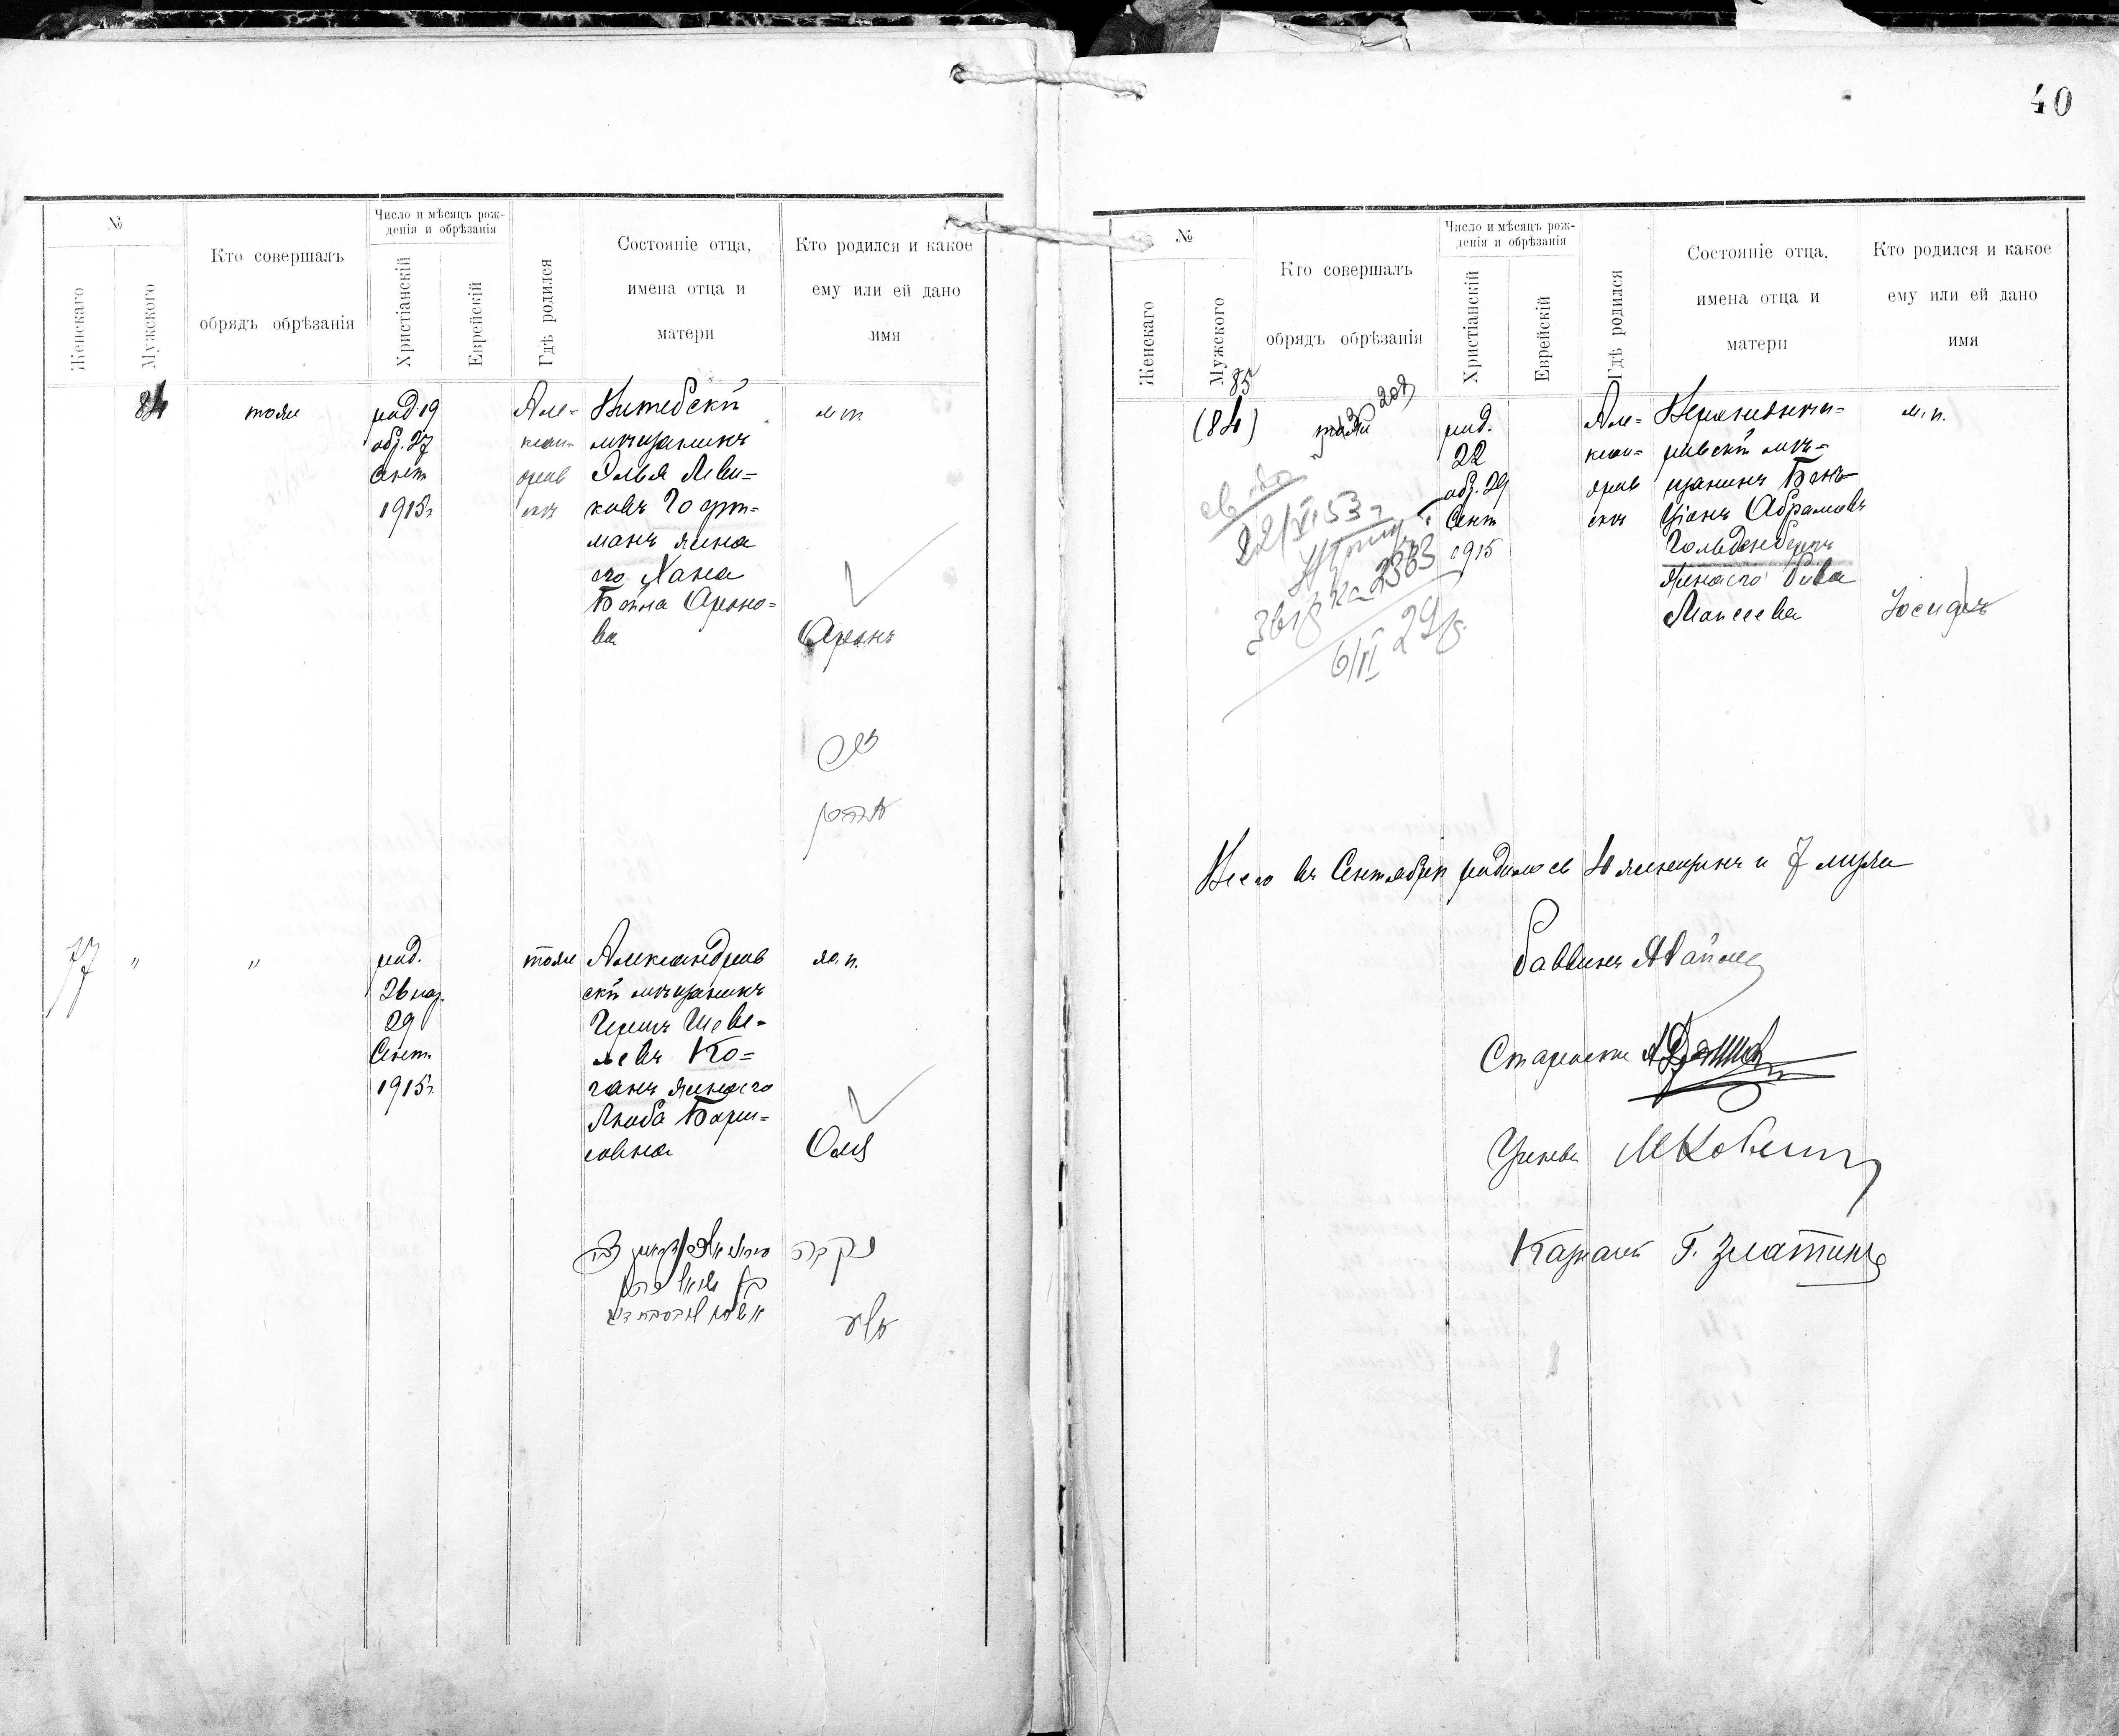 40
№
Женскаго
Мужского
Кто совершалъ
обрядъ обрѣзанія
Число и мѣсяцъ рож-
денія и обрѣзанія
Христіанскій
Еврейскій
Гдѣ родился
Состояніе отца,
имена отца и
матери
Кто родился и какое
ему или ей дано
имя
84
тоже
род. 19
обр. 27
Сент
1915 г
Але-
ксан-
дров
скъ
Витебскій
мѣщанинъ
Эльья Леви-
ковъ
манъ жена
его Хана
Бейна Ароно-
ва
м п.
Аронъ
77
"
"
род.
26 нар.
29
Сент.
1915 г.
тоже
Александров
скій мѣщанинъ
Гершъ Шеве-
левъ Ко-
ганъ жена его
Люба Бори-
совна
ж. п.
Оля
נקבה
№
Женскаго
Мужского
Кто совершалъ
обрядъ обрѣзанія
Число и мѣсяцъ рож-
денія и обрѣзанія
Христіанскій
Еврейскій
Гдѣ родился
Состояніе отца,
имена отца и
матери
Кто родился и какое
ему или ей дано
имя
85
(84)
тоже
род.
22
обр. 29
Сент
1915
Але-
ксан-
дров
скъ
мѣ-
щанинъ Бенъ
Ціонъ Абрамовъ
Гольденбергъ
жена его Рива
Моисеева
м. п.
Іосифъ
22/XI 53 г
2363
6/II 29 г.
Всего въ Сентябрѣ родилось 4 женщинъ и 7 мужч
Раввинъ
Староста
Ученый
Казначей Г. Златинъ